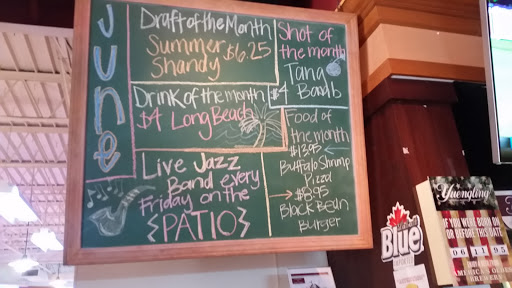 June
Draft of the Month
Summer $6.25
Shandy
Shot of
the month
Tang
$4 Bomb
Drink of the month
$4 Long Beach
Food of
the month
$13.95
Buffalo Shrimp
Pizza
$8.95
Black Bean
Burger
Live Jazz
Band every
Friday on the
{PATIO}
Blue
Yuengling
IF YOU WERE BORN ON
OR BEFORE THIS DATE
06 11 95
AMERICA'S OLDEST
BREWERY